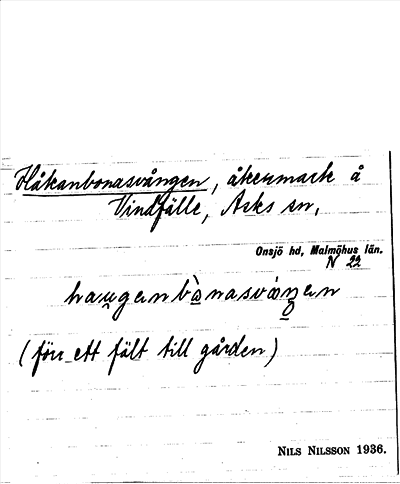 Håkanbonasvången, åkermark å
Vindfälle, Asks sn,
Onsjö hd, Malmöhus län.
N 22
(förr ett fält till gården)
NILS NILSSON 1936.